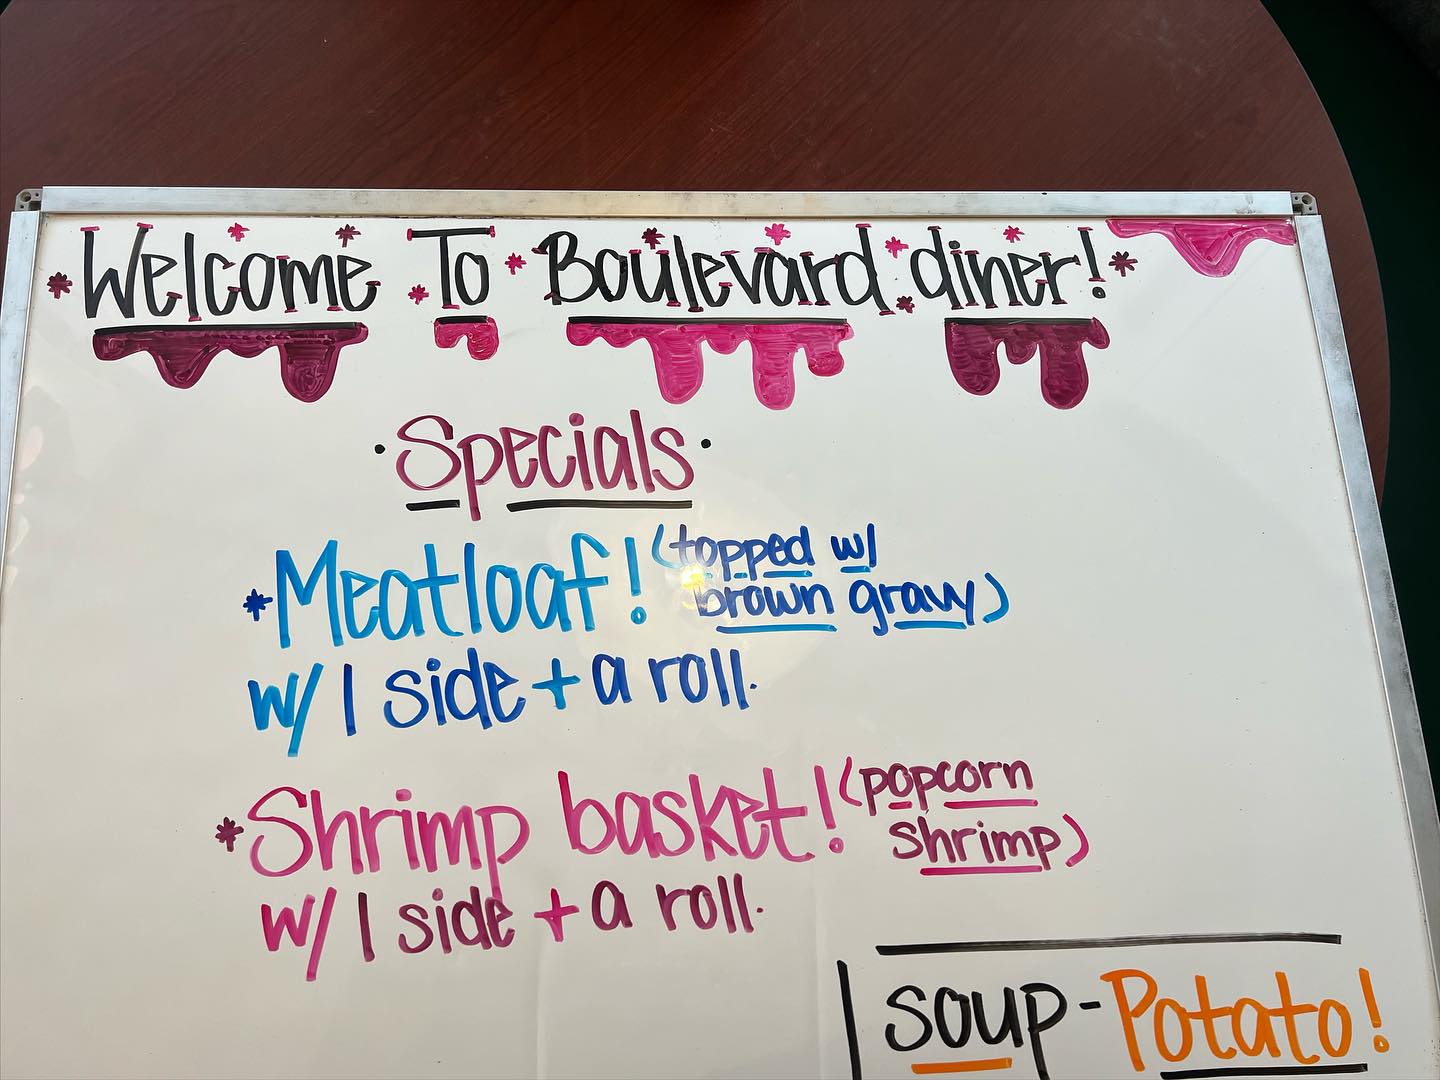 *Welcome *To * Boulevard * diner! *
• Specials •
* Meatloaf! (topped w/
brown gravy)
w/ 1 side + a roll.
* Shrimp basket! (popcorn
shrimp)
w/ 1 side + a roll.
soup - Potato!